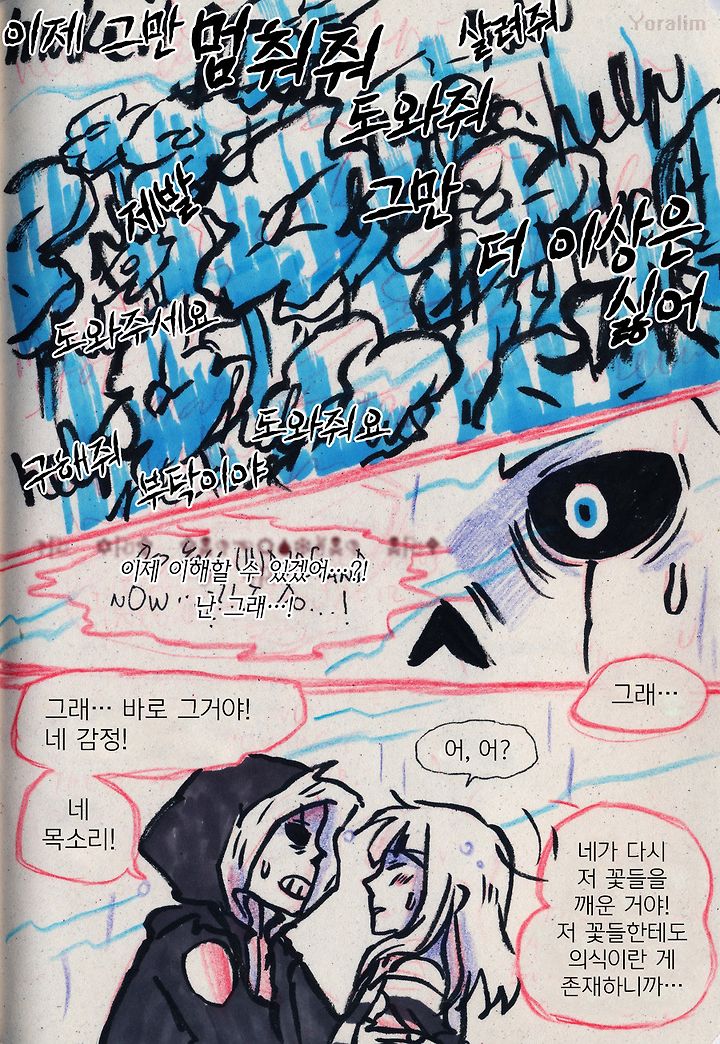 Yoralim
이제 그만
멈춰줘
살려줘
도와줘
help
제발
그만
더 이상은
싫어
도와주세요
도와줘요
구해줘
부탁이야
이제 이해할 수 있겠어…?!
난 그래…!
NOW
그래…
그래… 바로 그거야!
네 감정!
어, 어?
네
목소리!
네가 다시
저 꽃들을
깨운 거야!
저 꽃들한테도
의식이란 게
존재하니까…